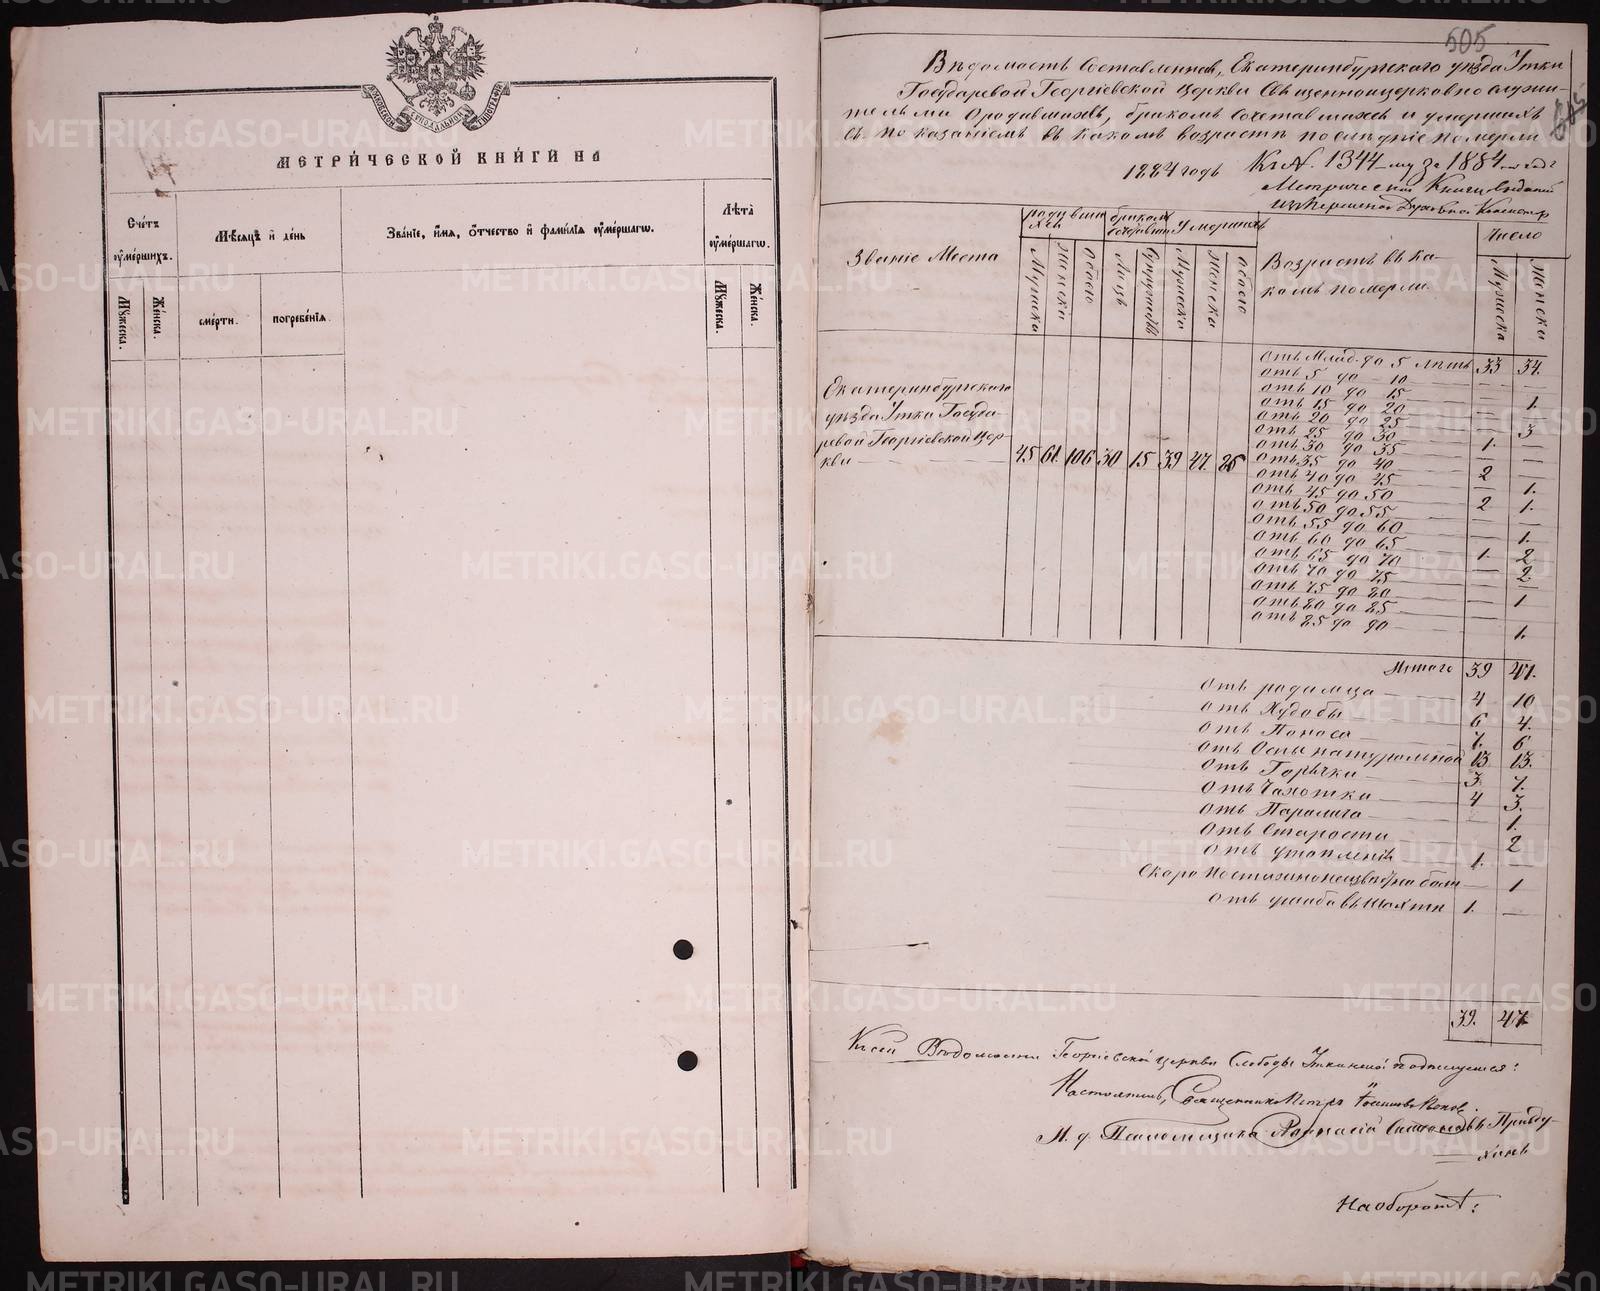 МЕТРИ́ЧЕСКОЙ КНИ́ГИ НА
Сче́тъ
ᲂумершихъ.
Мѣсяцъ и де́нь
Зва́нїе, и́мя, ѻ́тчество и фами́лїя ᲂуме́ршагѡ.
Лѣта̀
ᲂуме́ршагѡ.
Мꙋжеска.
Же́нска.
сме́рти.
погребе́нїя.
Мꙋжеска.
Же́нска.
505
Вѣдомость Составленная, Екатеринбургскаго уѣзда Утки
Государевой Георгіевской Церкви Священноцерковнослужи-
телями о родившихъ, бракомъ сочетавшихся и умершихъ
съ показаніемъ въ какомъ возрастѣ послѣдніе померли
1884 годъ
Къ №. 1344 му за 1884
Метрической Книги выданой
изъ Пермской Духовной Консистор
Званіе Места
родивши
хся
бракомъ
Умершихъ
Возрастъ въ ка-
комъ померли.
Число
Мужеска
Женска
Обоего
Лицъ
Супружествъ
Мужеска
Женска
Обоего
Мужеска
Женска
Екатеринбургскаго
уѣзда Утка Госуда-
ревой Георгіевской Цер-
кви 45 61. 106 30 15 39 47. 86
Отъ Млад. до 5 лѣтъ 33 34.
отъ 5 до 10 — —
отъ 10 до 15 — 1.
отъ 15 до 20
отъ 20 до 25 — 3
отъ 25 до 30 1. —
отъ 30 до 35
отъ 35 до 40 2 —
отъ 40 до 45 — 1.
отъ 45 до 50 2 1.
отъ 50 до 55 — —
отъ 55 до 60 — 1.
отъ 60 до 65 1. 2
отъ 65 до 70 — 2.
отъ 70 до 75 — —
отъ 75 до 80 — 1
отъ 80 до 85
отъ 85 до 90 — 1.
Итого 39 47.
Отъ родимца 4 10
отъ Худобы 6 4.
отъ Поноса 7. 6
отъ Оспы натуральной 13 13.
отъ Горячки 3. 7.
отъ Чахотки 4 3.
отъ Паралича — 1.
отъ Старости — 2
отъ утопленія 1. —
Скоро — 1
отъ ушиба въ шахтѣ 1. —
39. 47.
Къ сей Вѣдомости Георгіевской церкви Слободы Уткинской подписуемся:
Настоятель, Священникъ Петръ Поповъ.
И. д. Псаломщика Афанасій Пряду-
хинъ
На оборотѣ: